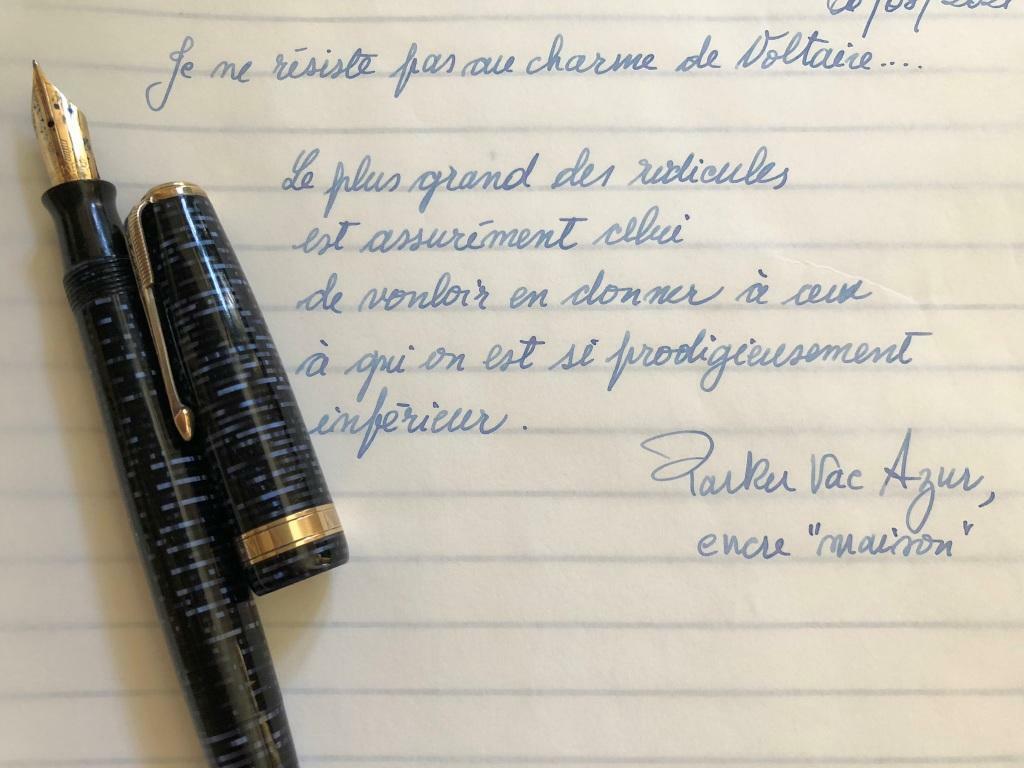 Je ne résiste pas au charme de Voltaire....
Le plus grand des ridicules
est assurément celui
de vouloir en donner à ceux
à qui on est si prodigieusement
inférieur.
Parker Vac Azur,
encre "maison"